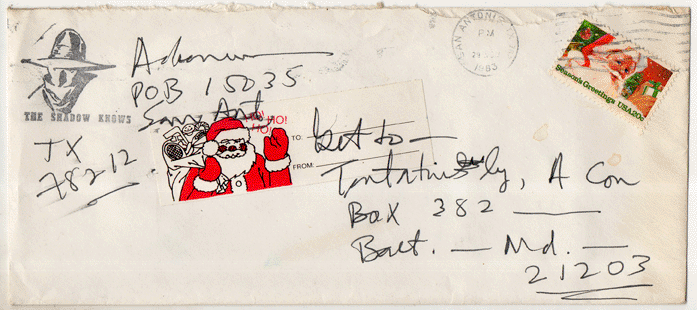 THE SHADOW KNOWS
POB 15035
San Ant
TX
78212
SAN ANTONIO
PM
1983
Season's Greetings USA 20c
HO!
HO!
TO:
FROM:
Get to —
Tentatively, A Con
Box 382
Balt. — Md. —
21203